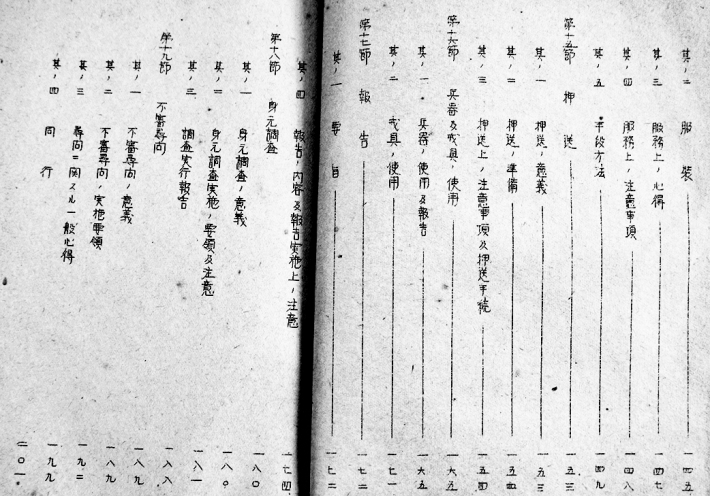 其ノ二 服装 一四五
其ノ三 服務上ノ心得 一四七
其ノ四 服務上ノ注意事項 一四八
其ノ五 手段方法 一四九
第十五節 押送 一五三
其ノ一 押送ノ意義 一五三
其ノ二 押送ノ準備 一五四
其ノ三 押送上ノ注意事項及押送手続 一五四
第十六節 兵器及戒具ノ使用 一六五
其ノ一 兵器ノ使用及報告 一六五
其ノ二 戒具ノ使用 一七一
第十七節 報告 一七二
其ノ一 要旨 一七二
其ノ四 報告ノ内容及報告実施上ノ注意 一七四
第十八節 身元調査 一八〇
其ノ一 身元調査ノ意義 一八〇
其ノ二 身元調査実施ノ要領及注意 一八一
其ノ三 調査実行報告
第十九節 不審尋問 一八八
其ノ一 不審尋問ノ意義 一八九
其ノ二 不審尋問ノ実施要領 一八九
其ノ三 尋問ニ関スル一般心得 一九二
其ノ四 同行 一九九
二〇一